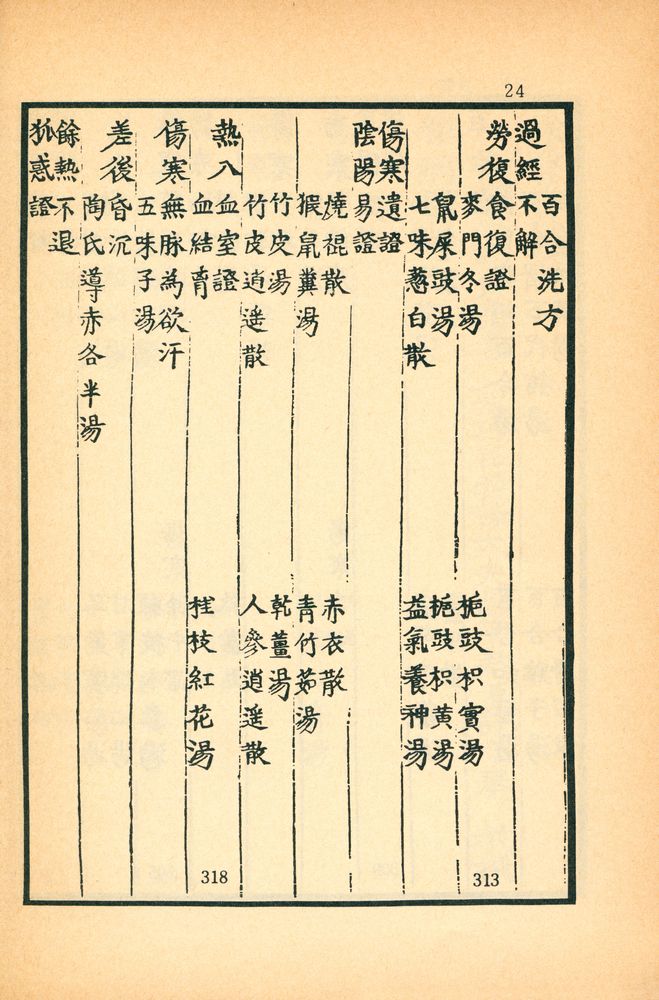 24
百合洗方
過經不解
勞復食復證
麥門冬湯 梔豉枳實湯
鼠屎豉湯 梔豉枳黃湯
七味葱白散 益氣養神湯
傷寒遺證
陰陽易證
燒裩散 赤衣散
猳鼠糞湯 青竹茹湯
竹皮湯 乾薑湯
竹皮逍遙散 人參逍遙散
熱入血室證
血結胷 桂枝紅花湯
傷寒無脉為欲汗
五味子湯
差後昏沉
陶氏導赤各半湯
餘熱不退
狐惑證
313
318